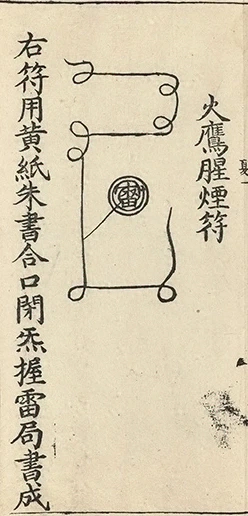 火鷹腥煙符
雷
右符用黃紙朱書合口閉炁握雷局書成